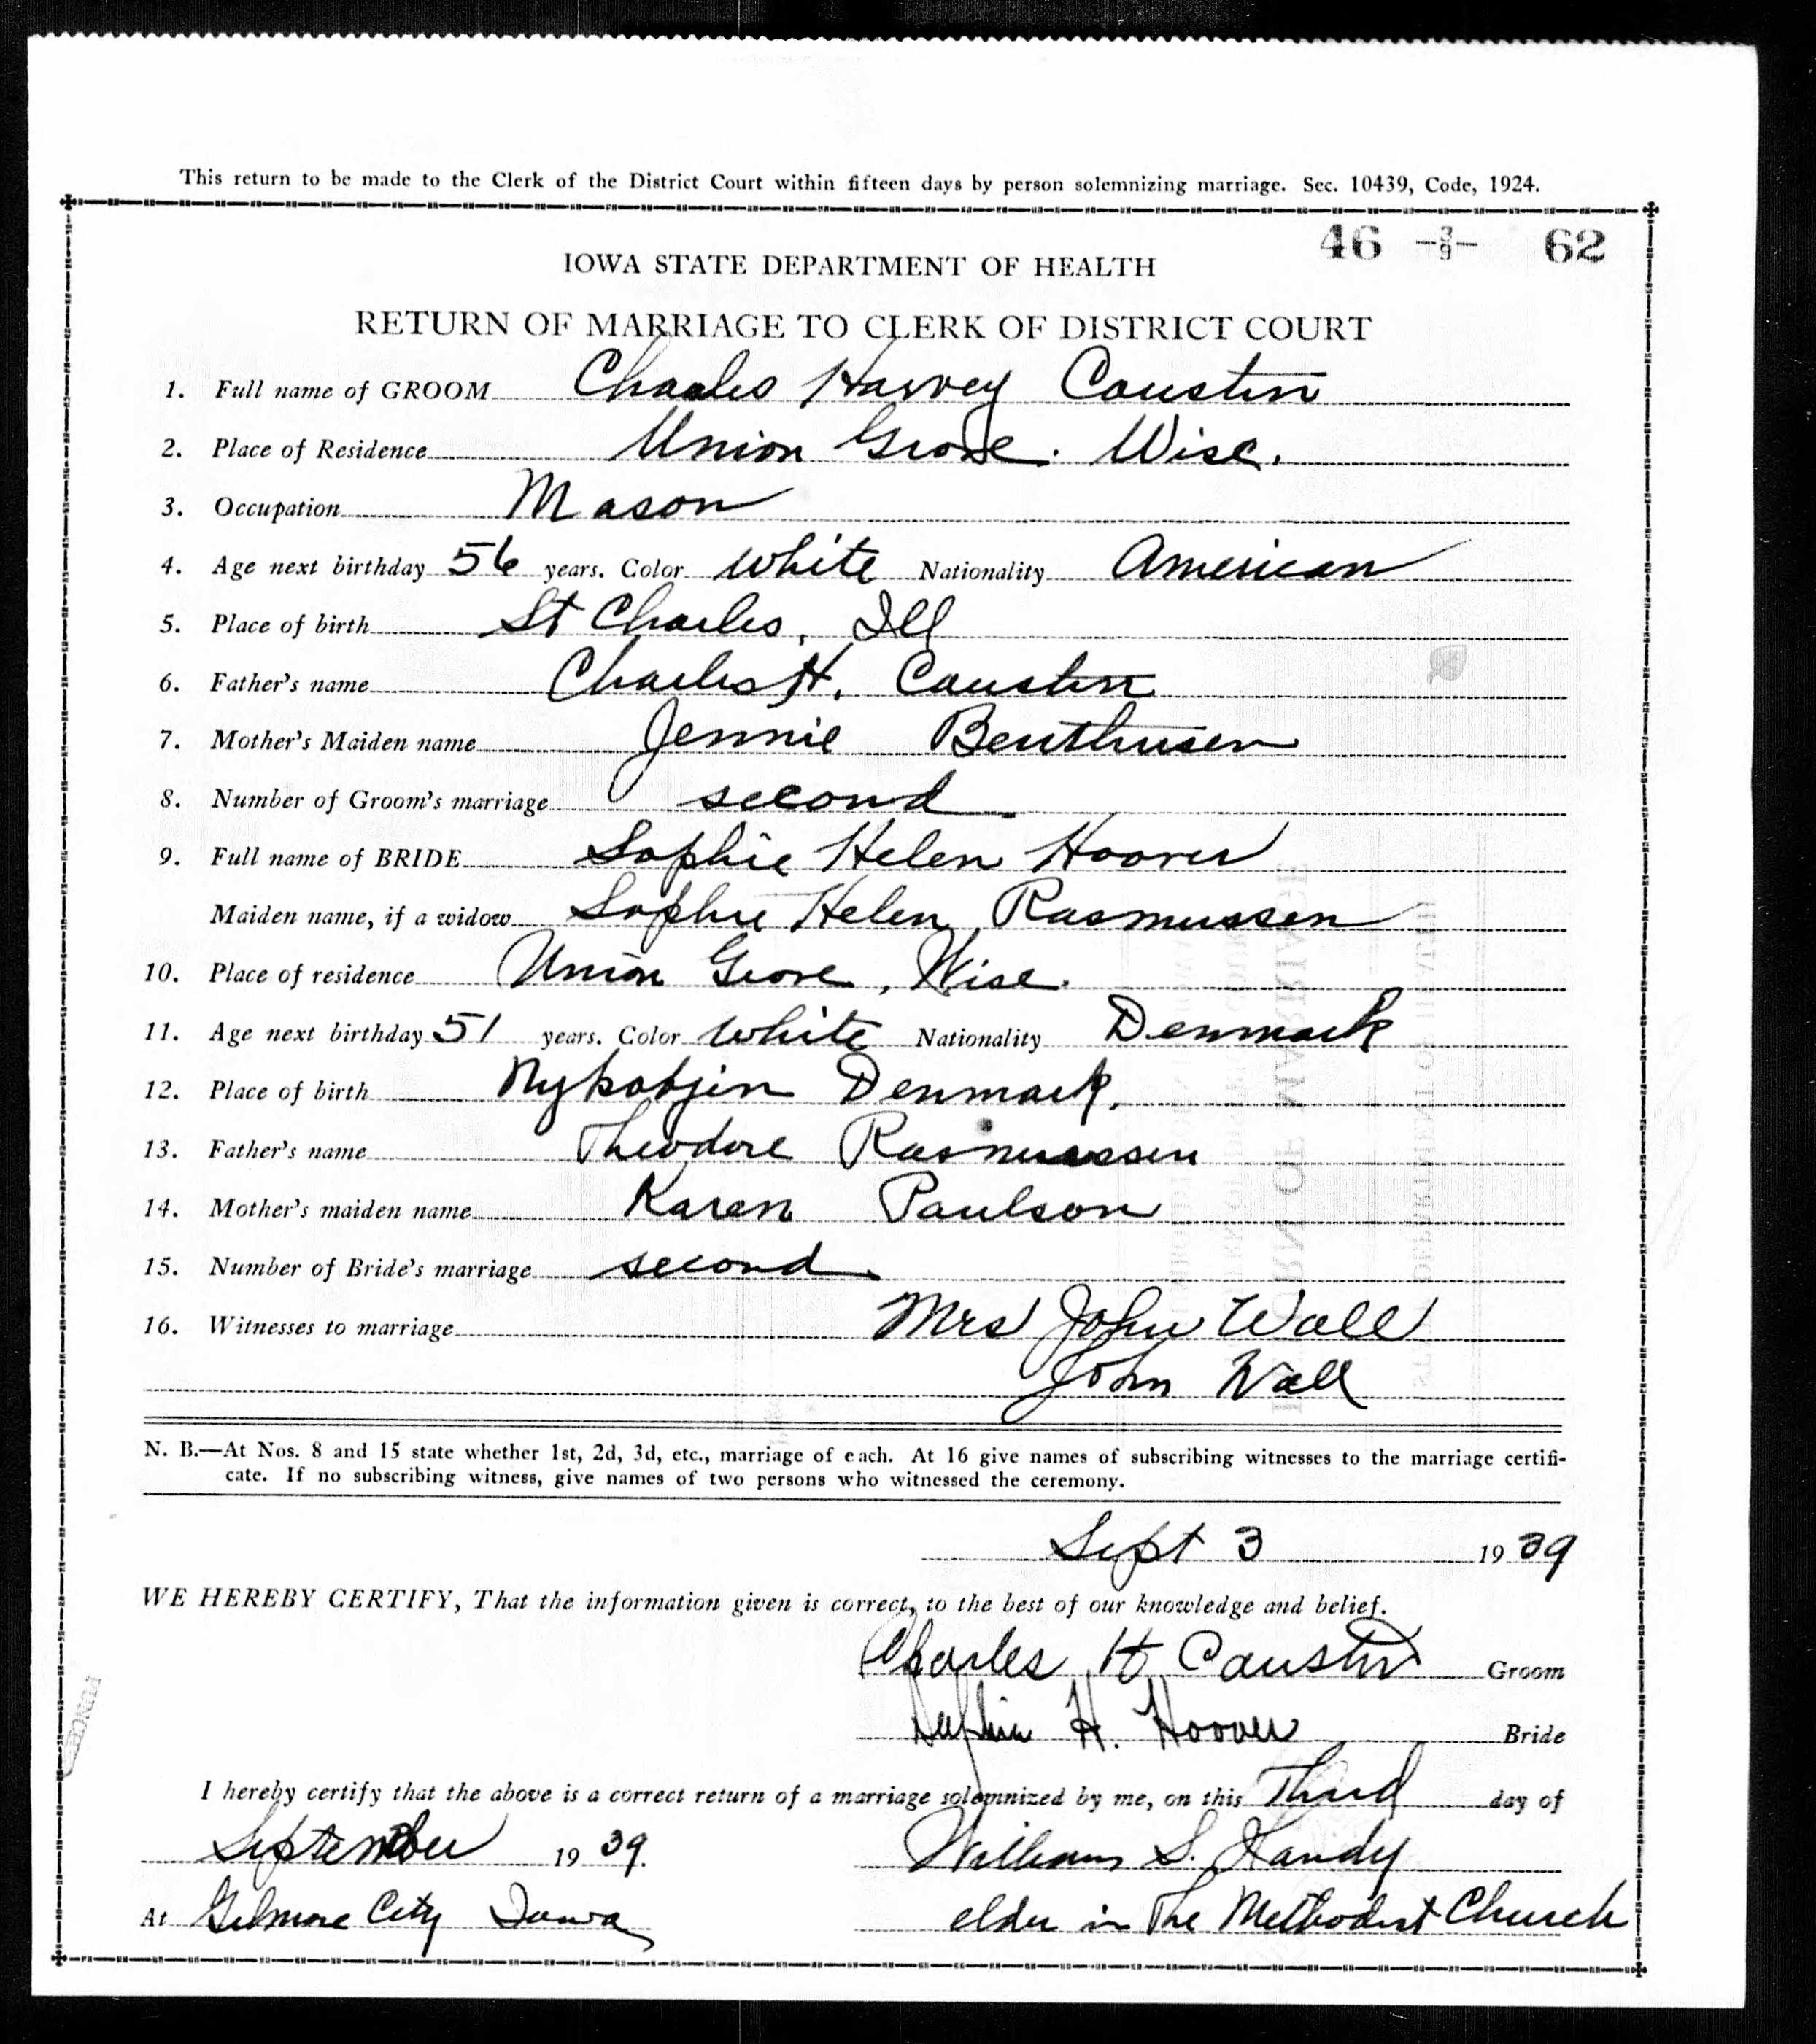 This return to be made to the Clerk of the District Court within fifteen days by person solemnizing marriage. Sec. 10439, Code, 1924.
46 -3/9- 62
IOWA STATE DEPARTMENT OF HEALTH
RETURN OF MARRIAGE TO CLERK OF DISTRICT COURT
1. Full name of GROOM Charles Harvey Caustin
2. Place of Residence Union Grove. Wisc.
3. Occupation Mason
4. Age next birthday 56 years. Color White Nationality American
5. Place of birth St Charles, Ill
6. Father's name Charles H. Caustin
7. Mother's Maiden name Jennie Benthusen
8. Number of Groom's marriage second
9. Full name of BRIDE Sophie Helen Hoover
Maiden name, if a widow Sophie Helen Rasmussen
10. Place of residence Union Grove, Wisc.
11. Age next birthday 51 years. Color White Nationality Denmark
12. Place of birth Nykobjin Denmark.
13. Father's name Theodore Rasmussen
14. Mother's maiden name Karen Paulson
15. Number of Bride's marriage second.
16. Witnesses to marriage Mrs John Wall
John Wall
N. B.—At Nos. 8 and 15 state whether 1st, 2d, 3d, etc., marriage of each. At 16 give names of subscribing witnesses to the marriage certifi-
cate. If no subscribing witness, give names of two persons who witnessed the ceremony.
Sept 3 1939
WE HEREBY CERTIFY, That the information given is correct, to the best of our knowledge and belief.
Charles H Caustin Groom
Sophie H. Hoover Bride
I hereby certify that the above is a correct return of a marriage solemnized by me, on this Third day of
September 1939. William S. Handy
At Gilmore City Iowa elder in The Methodist Church